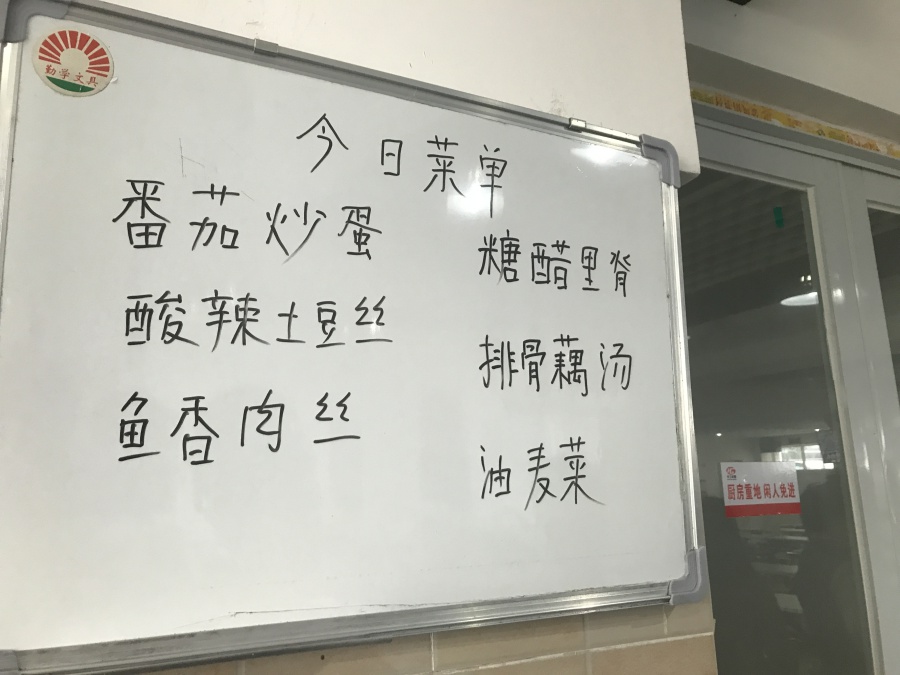 勤学文具
今日菜单
番茄炒蛋
酸辣土豆丝
鱼香肉丝
糖醋里脊
排骨藕汤
油麦菜
厨房重地 闲人免进